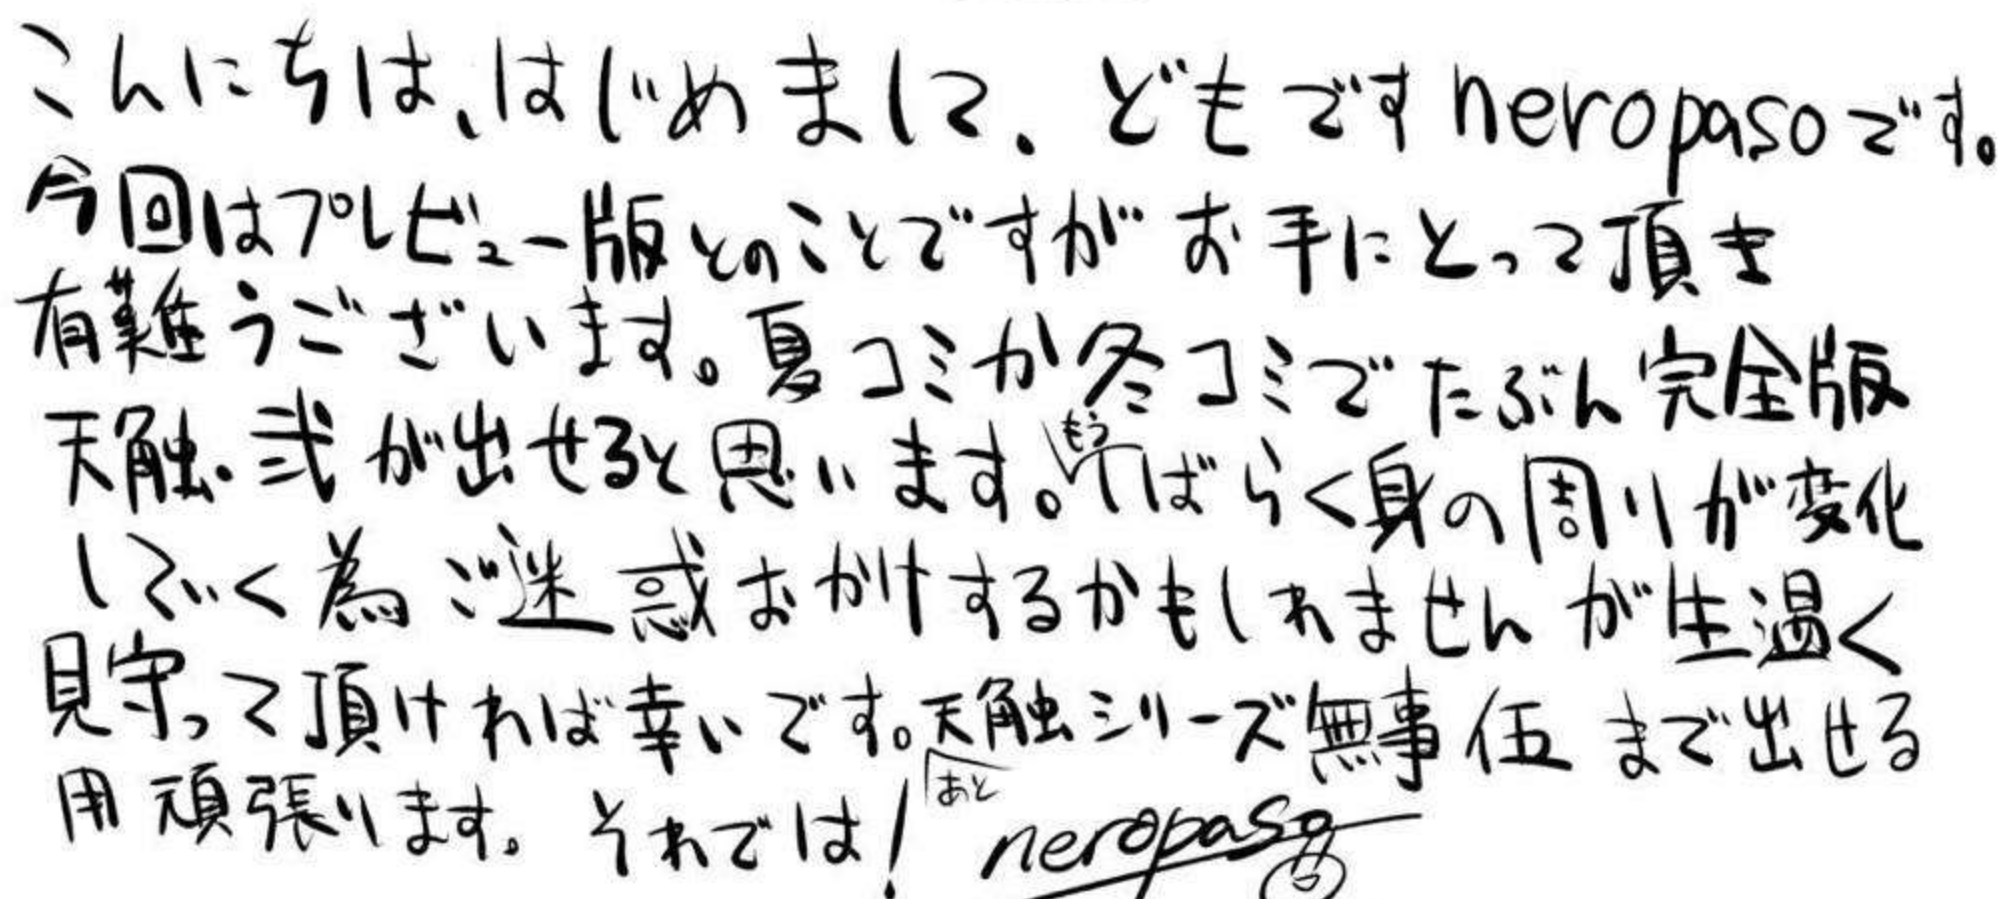 こんにちは、はじめまして、どもですneropasoです。
今回はプレビュー版とのことですがお手にとって頂き
有難うございます。夏コミか冬コミでたぶん完全版
天触・弐が出せると思います。もうしばらく身の周りが変化
していく為ご迷惑おかけするかもしれませんが生温く
見守って頂ければ幸いです。あと天触シリーズ無事伍まで出せる
用頑張ります。それでは! neropaso